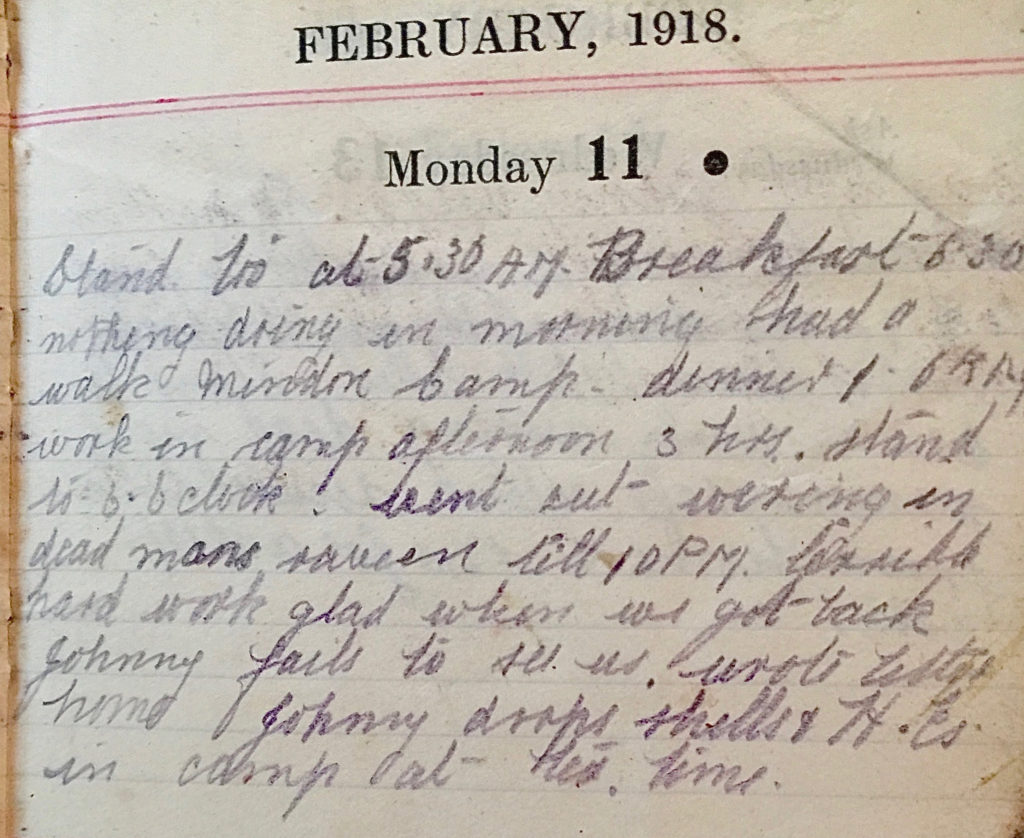 FEBRUARY, 1918.
Monday 11
Stand to at 5.30 AM. Breakfast 6 30
nothing doing in morning had a
walk Camp. dinner 1.
work in camp afternoon 3 hrs. stand
to 6. o clock. went out wireing in
dead mans raveen till 10 PM. terrible
hard work glad when we got back
Johnny fails to see us. wrote letter
home Johnny drops shells & H. Es.
in camp at tea time.